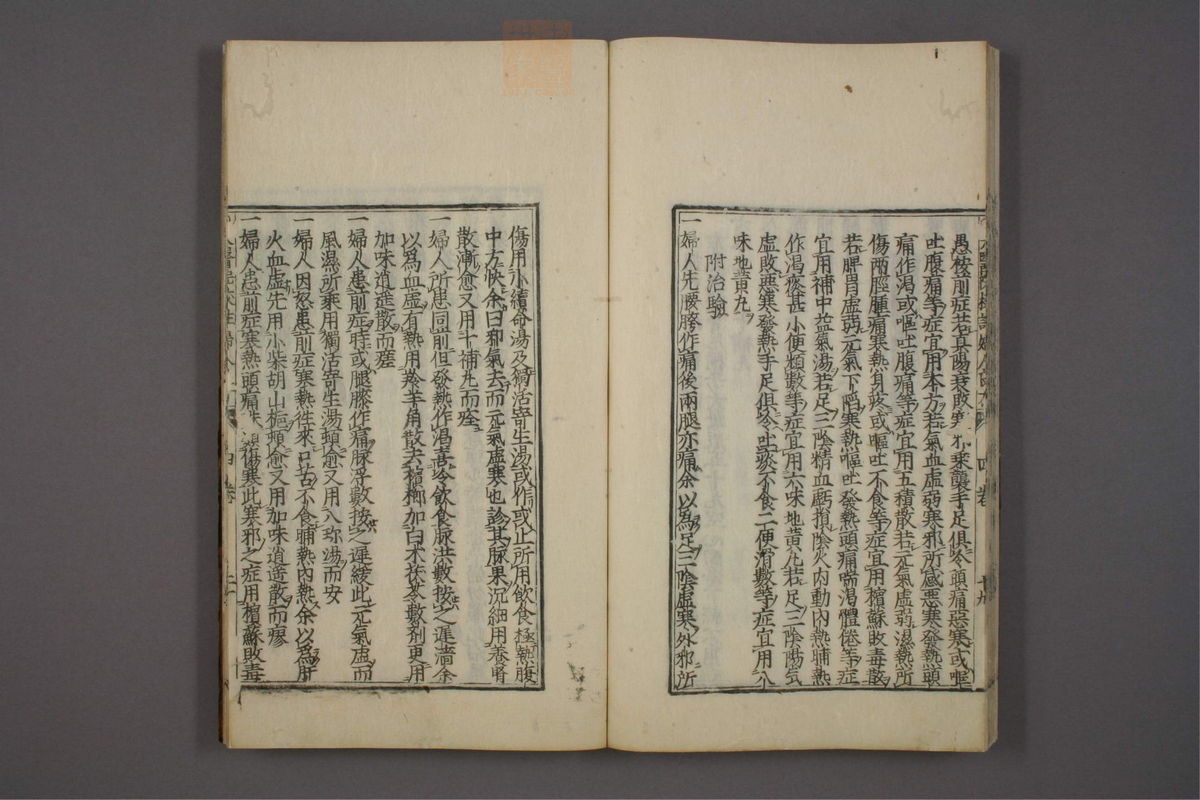 愚按前症若真陽衰敗寒邪乘襲手足俱冷頭痛惡寒或嘔
吐腹痛等症宜用本方若氣血虛弱寒邪所感惡寒發熱頭
痛作渴或嘔吐腹痛等症宜用五積散若元氣虛弱濕熱所
傷兩脛腫痛寒熱身疼或嘔吐不食等症宜用檳蘇敗毒散
若脾胃虛弱元氣下陷寒熱嘔吐發熱頭痛喘渴體倦等症
宜用補中益氣湯若足三陰精血虧損陰火內動內熱晡熱
作渴痰甚小便頻數等症宜用六味地黃丸若足三陰陽氣
虛敗惡寒發熱手足俱冷吐痰不食二便滑數等症宜用八
味地黃丸
附治驗
一婦人先腰胯作痛後兩腿亦痛余以為足三陰虛寒外邪所
傷用小續命湯及獨活寄生湯或作或止所用飲食極熱腹
中方快余曰邪氣去而元氣虛寒也診其脈果沉細用養腎
散漸愈又用十補丸而痊
一婦人所患同前但發熱作渴喜冷飲食脈洪數按之遲濇余
以為血虛有熱用羚羊角散去檳榔加白朮茯苓數劑更用
加味逍遙散而痊
一婦人患前症時或腿膝作痛脈浮數按之遲緩此元氣虛而
風濕所乘用獨活寄生湯頓愈又用八珍湯而安
一婦人因怒患前症寒熱往來口苦不食晡熱內熱余以為肝
火血虛先用小柴胡山梔頓愈又用加味逍遙散而瘳
一婦人患前症寒熱頭痛殊類傷寒此寒邪之症用檳蘇敗毒
四卷
十九
四卷
二十